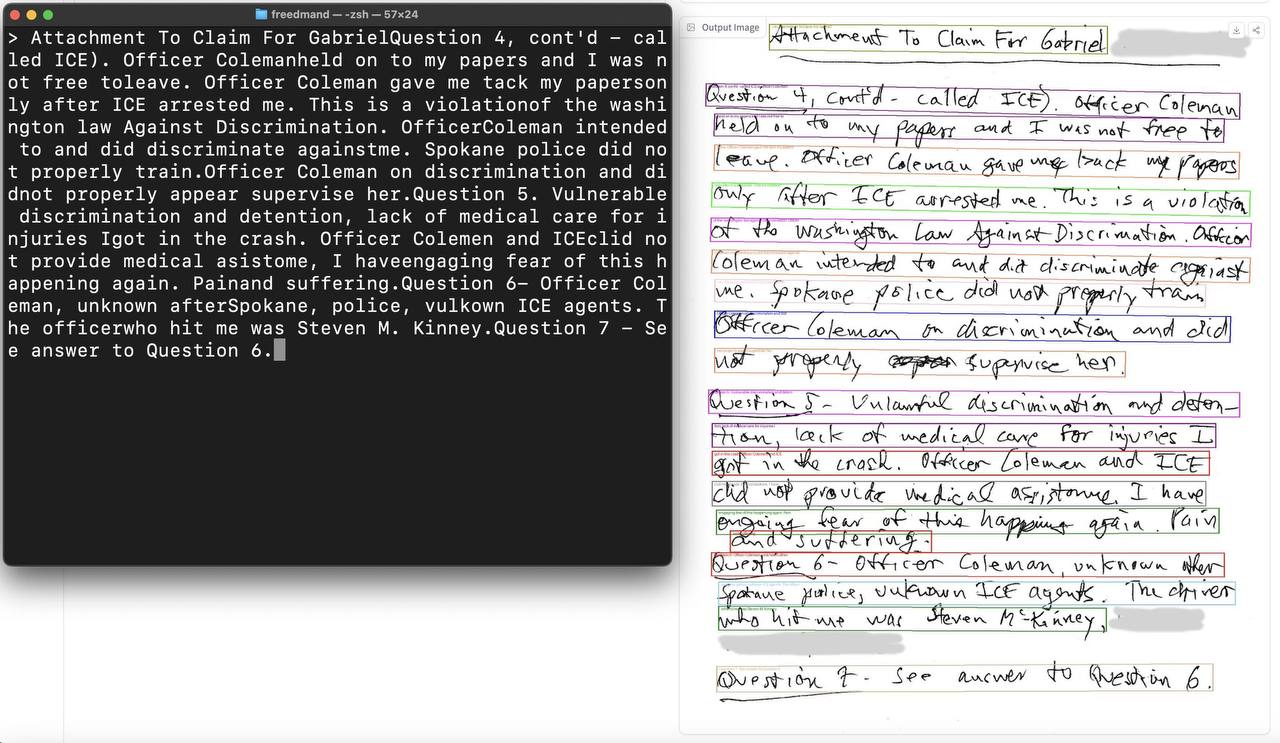 freedmand — -zsh — 57×24
> Attachment To Claim For GabrielQuestion 4, cont'd – cal
led ICE). Officer Colemanheld on to my papers and I was n
ot free toleave. Officer Coleman gave me tack my paperson
ly after ICE arrested me. This is a violationof the washi
ngton law Against Discrimination. OfficerColeman intended
 to and did discriminate againstme. Spokane police did no
t properly train.Officer Coleman on discrimination and di
dnot properly appear supervise her.Question 5. Vulnerable
 discrimination and detention, lack of medical care for i
njuries Igot in the crash. Officer Colemen and ICEclid no
t provide medical asistome, I haveengaging fear of this h
appening again. Painand suffering.Question 6– Officer Col
eman, unknown afterSpokane, police, vulkown ICE agents. T
he officerwho hit me was Steven M. Kinney.Question 7 – Se
e answer to Question 6.
Output Image
Attachment To Claim For Gabriel
Question 4, cont'd - called ICE). Officer Coleman
held on to my papers and I was not free to
leave. Officer Coleman gave me back my papers
only after ICE arrested me. This is a violation
of the Washington Law Against Discrimination. Officer
Coleman intended to and did discriminate against
me. Spokane police did not properly train
Officer Coleman on discrimination and did
not properly supervise her.
Question 5 - Unlawful discrimination and deten-
tion, lack of medical care for injuries I
got in the crash. Officer Coleman and ICE
did not provide medical assistance. I have
ongoing fear of this happening again. Pain
and suffering.
Question 6 - Officer Coleman, unknown other
Spokane police, unknown ICE agents. The driver
who hit me was Steven McKinney,
Question 7 - See answer to Question 6.